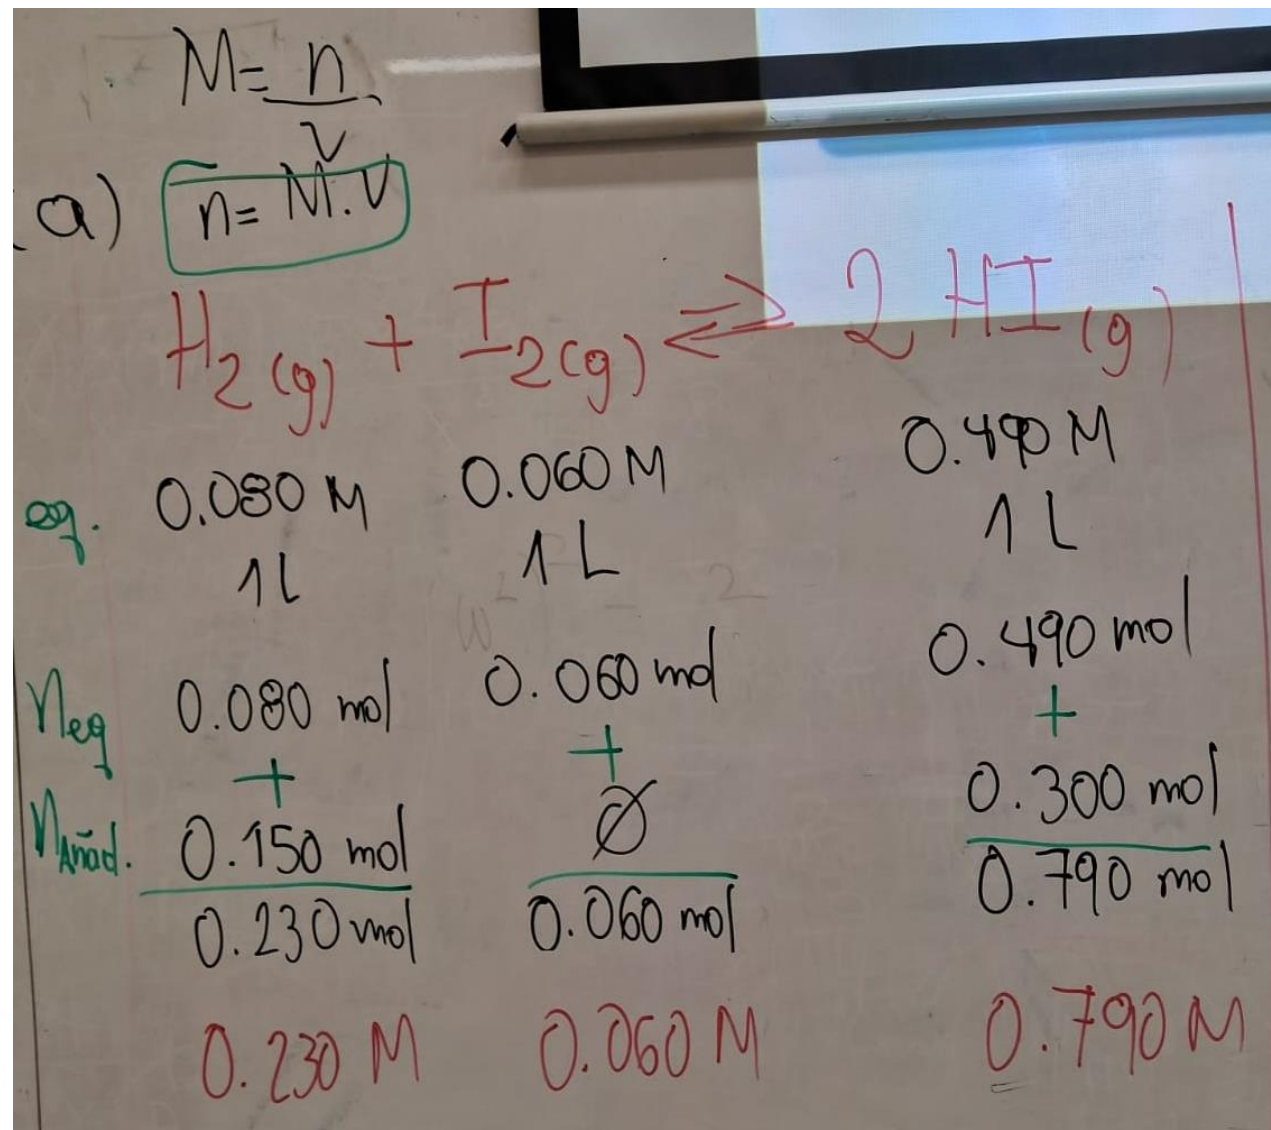 M = n
V
(a) n = M.V
H2(g) + I2(g) ⇌ 2 HI(g)
eq. 0.080 M 0.060 M 0.490 M
1L 1L 1L
neq 0.080 mol 0.060 mol 0.490 mol
+ + +
nAñad. 0.150 mol Ø 0.300 mol
0.230 mol 0.060 mol 0.790 mol
0.230 M 0.060 M 0.790 M